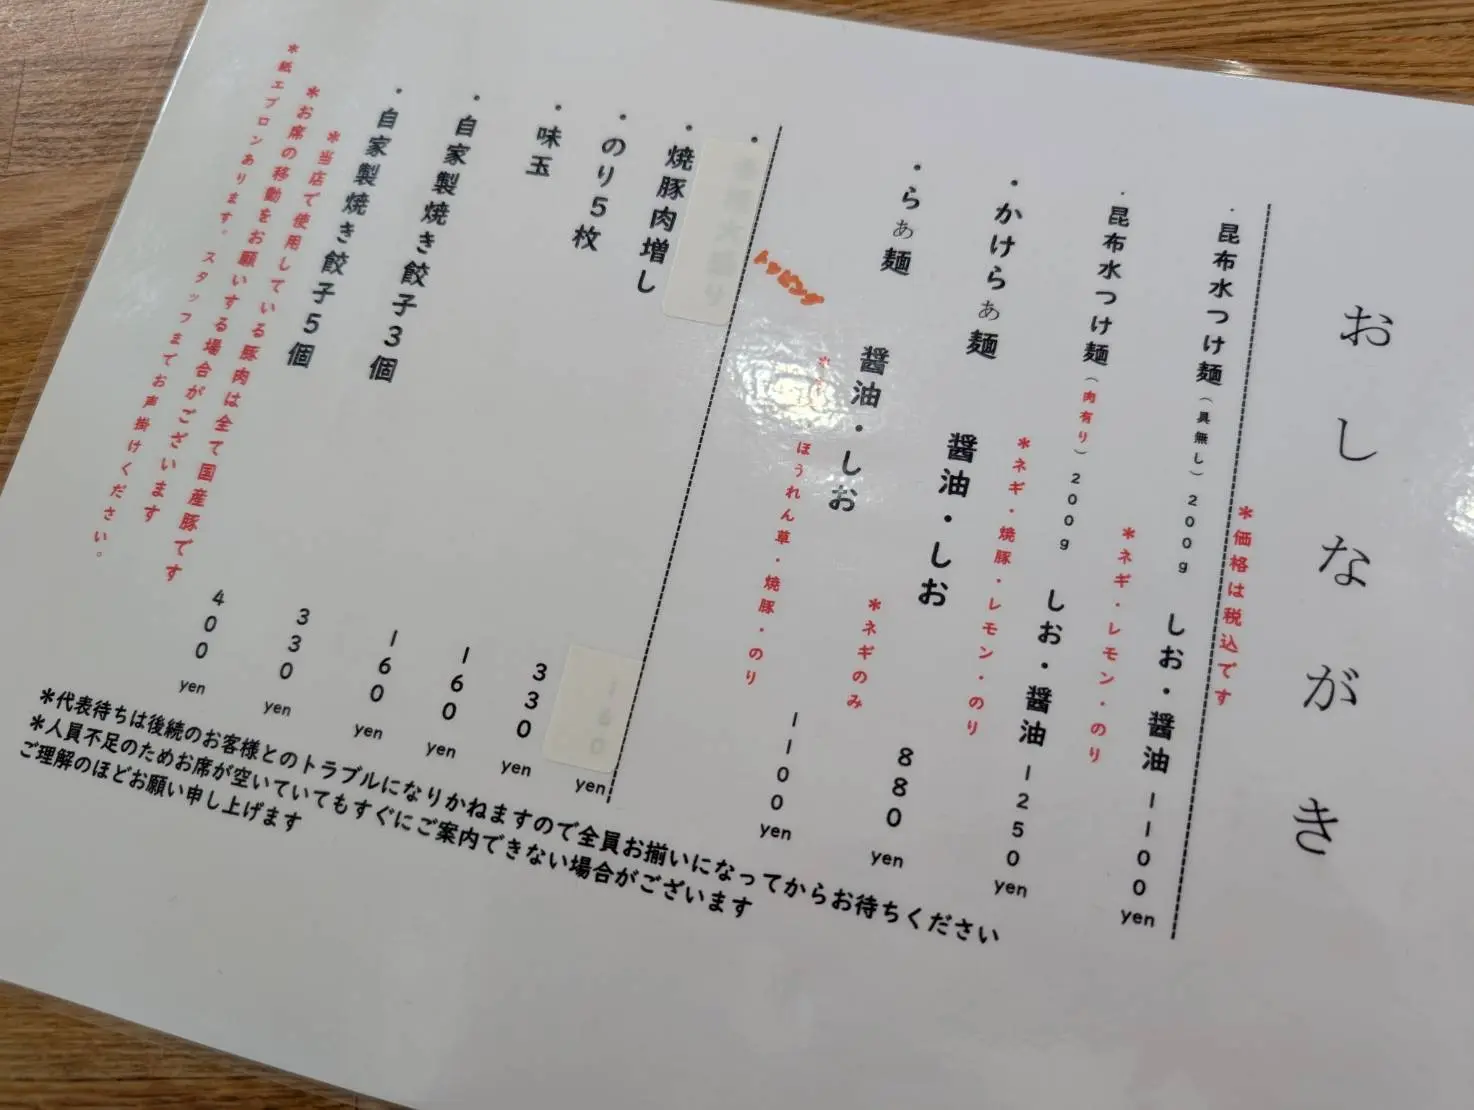 おしながき
＊価格は税込です
・昆布水つけ麺（具無し）200g しお・醤油 1100yen
＊ネギ・レモン・のり
・昆布水つけ麺（肉有り）200g しお・醤油 1250yen
＊ネギ・焼豚・レモン・のり
・かけらぁ麺 醤油・しお 880yen
＊ネギのみ
・らぁ麺 醤油・しお 1100yen
ほうれん草・焼豚・のり
トッピング
yen
・焼豚肉増し 330yen
・のり5枚 160yen
・味玉 160yen
・自家製焼き餃子3個 330yen
・自家製焼き餃子5個 400yen
＊当店で使用している豚肉は全て国産豚です
＊お席の移動をお願いする場合がございます
＊紙エプロンあります。スタッフまでお声掛けください。
＊代表待ちは後続のお客様とのトラブルになりかねますので全員お揃いになってからお待ちください
＊人員不足のためお席が空いていてもすぐにご案内できない場合がございます
ご理解のほどお願い申し上げます